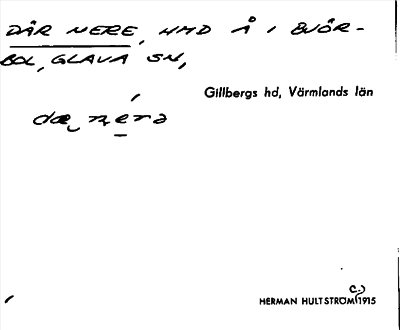 DÄR NERE, HMD Å I BJÖR-
BOL, GLAVA SN,
Gillbergs hd, Värmlands län
dæ nerə
HERMAN HULTSTRÖM (c.) 1915